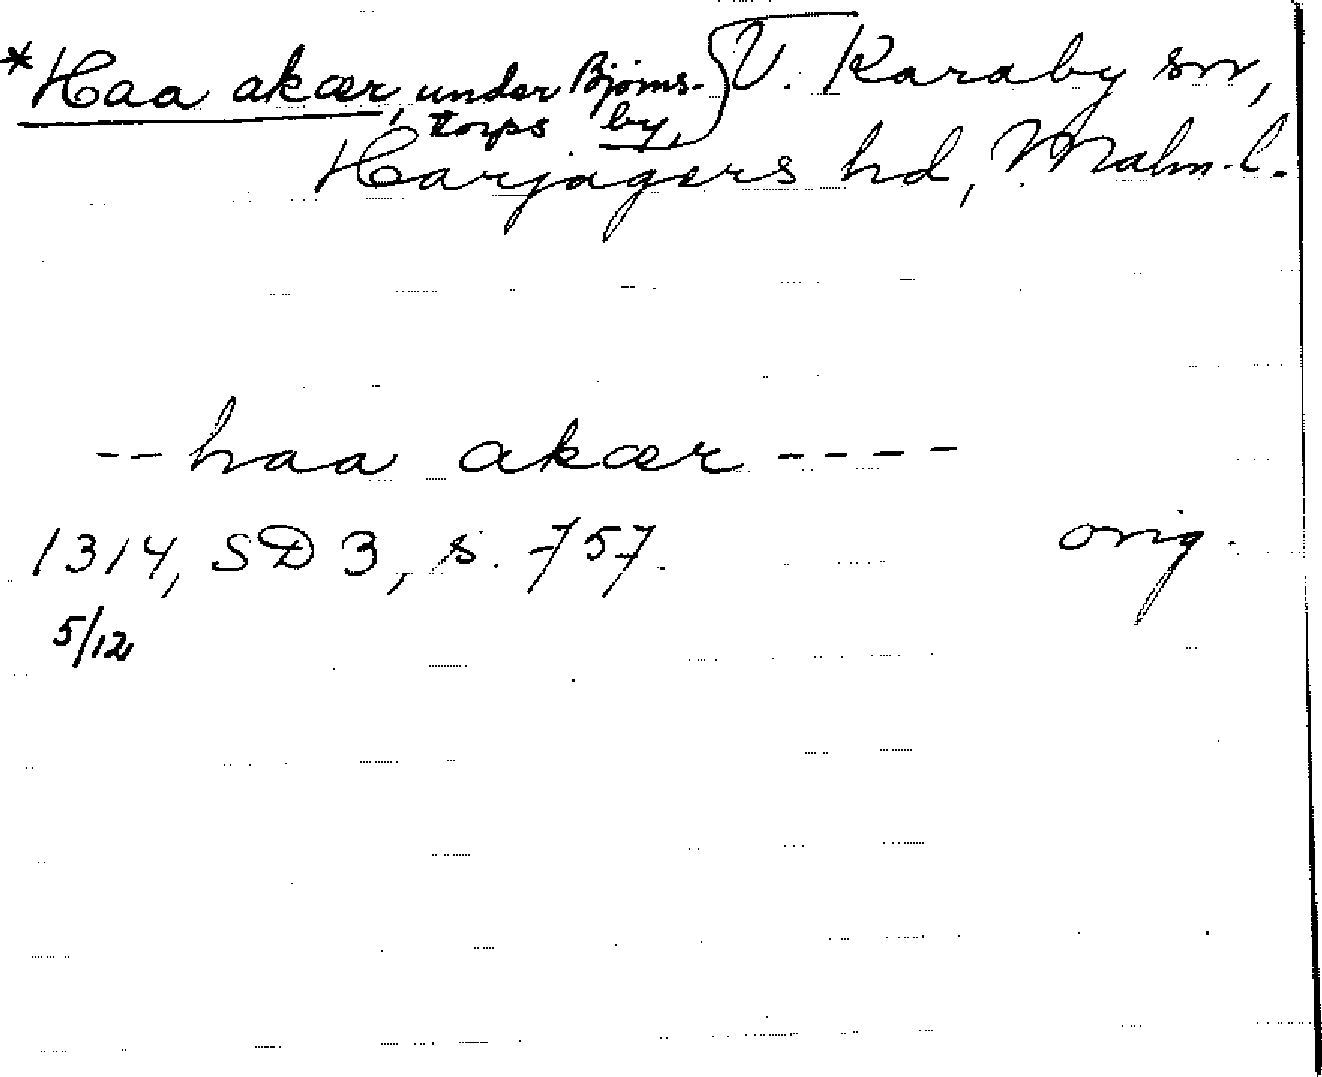 *Haa akær, under Bjørns- V. Karaby sn,
torps by,
Harjagers hd, Malm. l.
--haa akær----
1314, SD 3, s. 757. orig.
5/12